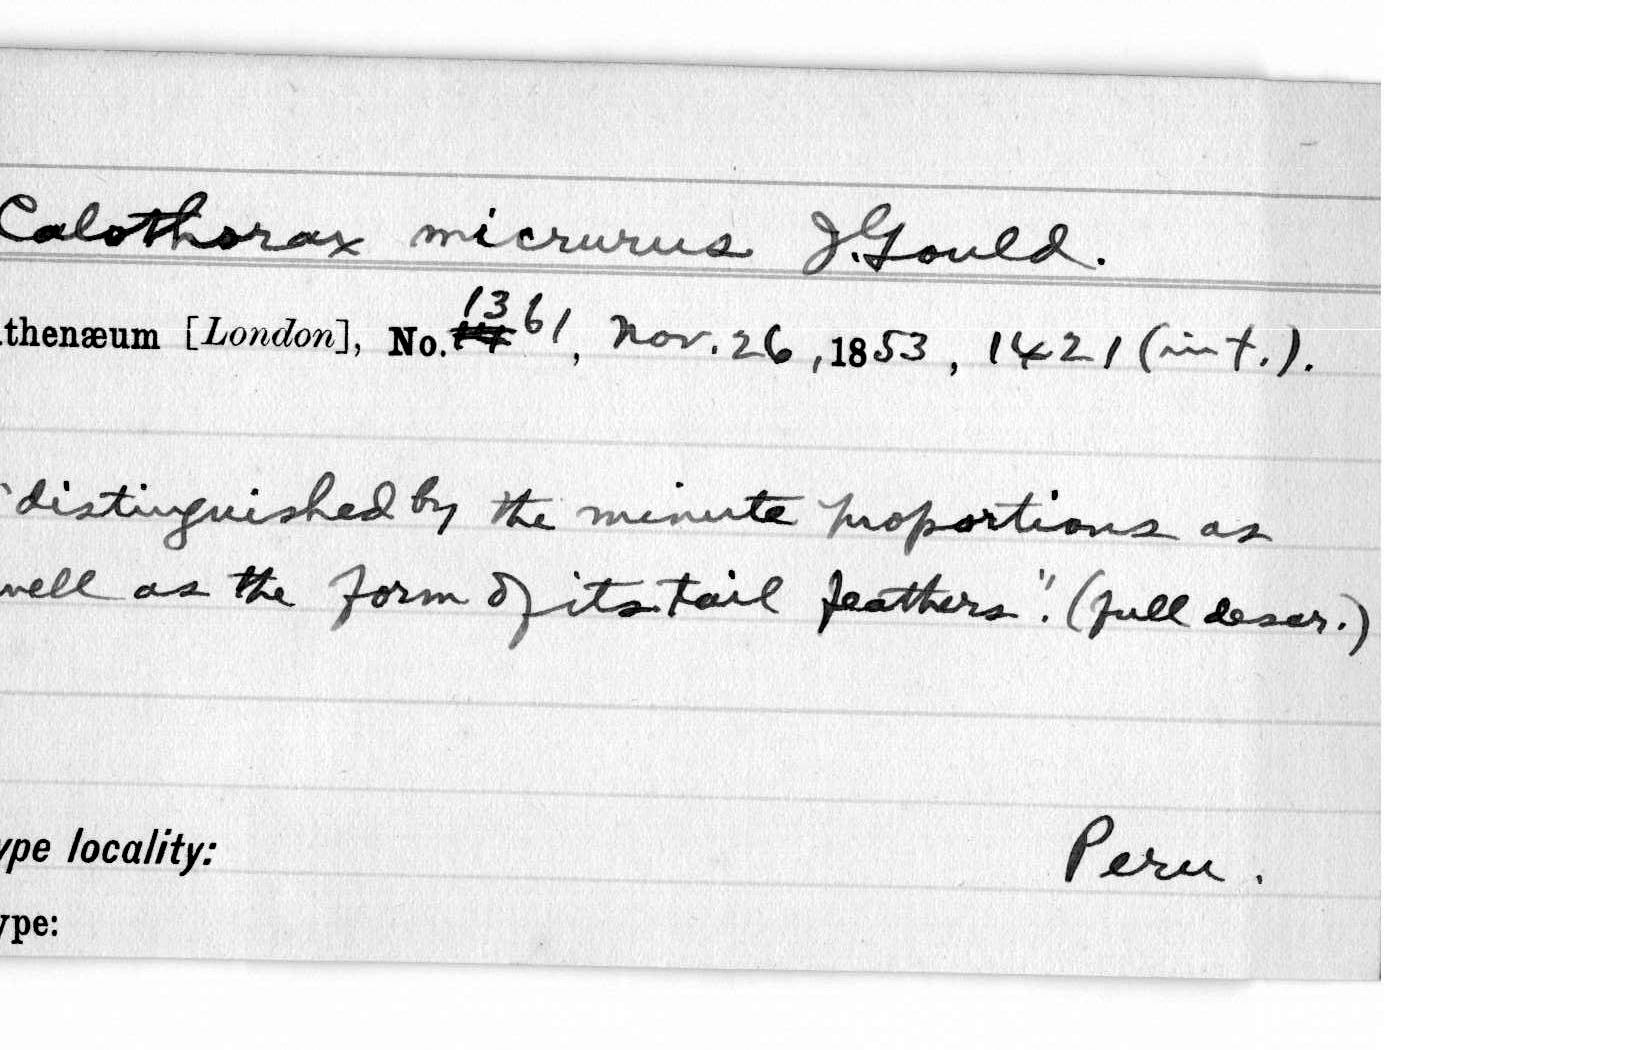 Calothorax micrurus J. Gould.
thenæum [London], No. 1361, Nov. 26, 1853, 1421 (int.).
"distinguished by the minute proportions as
well as the form of its tail feathers". (full descr.)
ype locality: Peru.
ype: